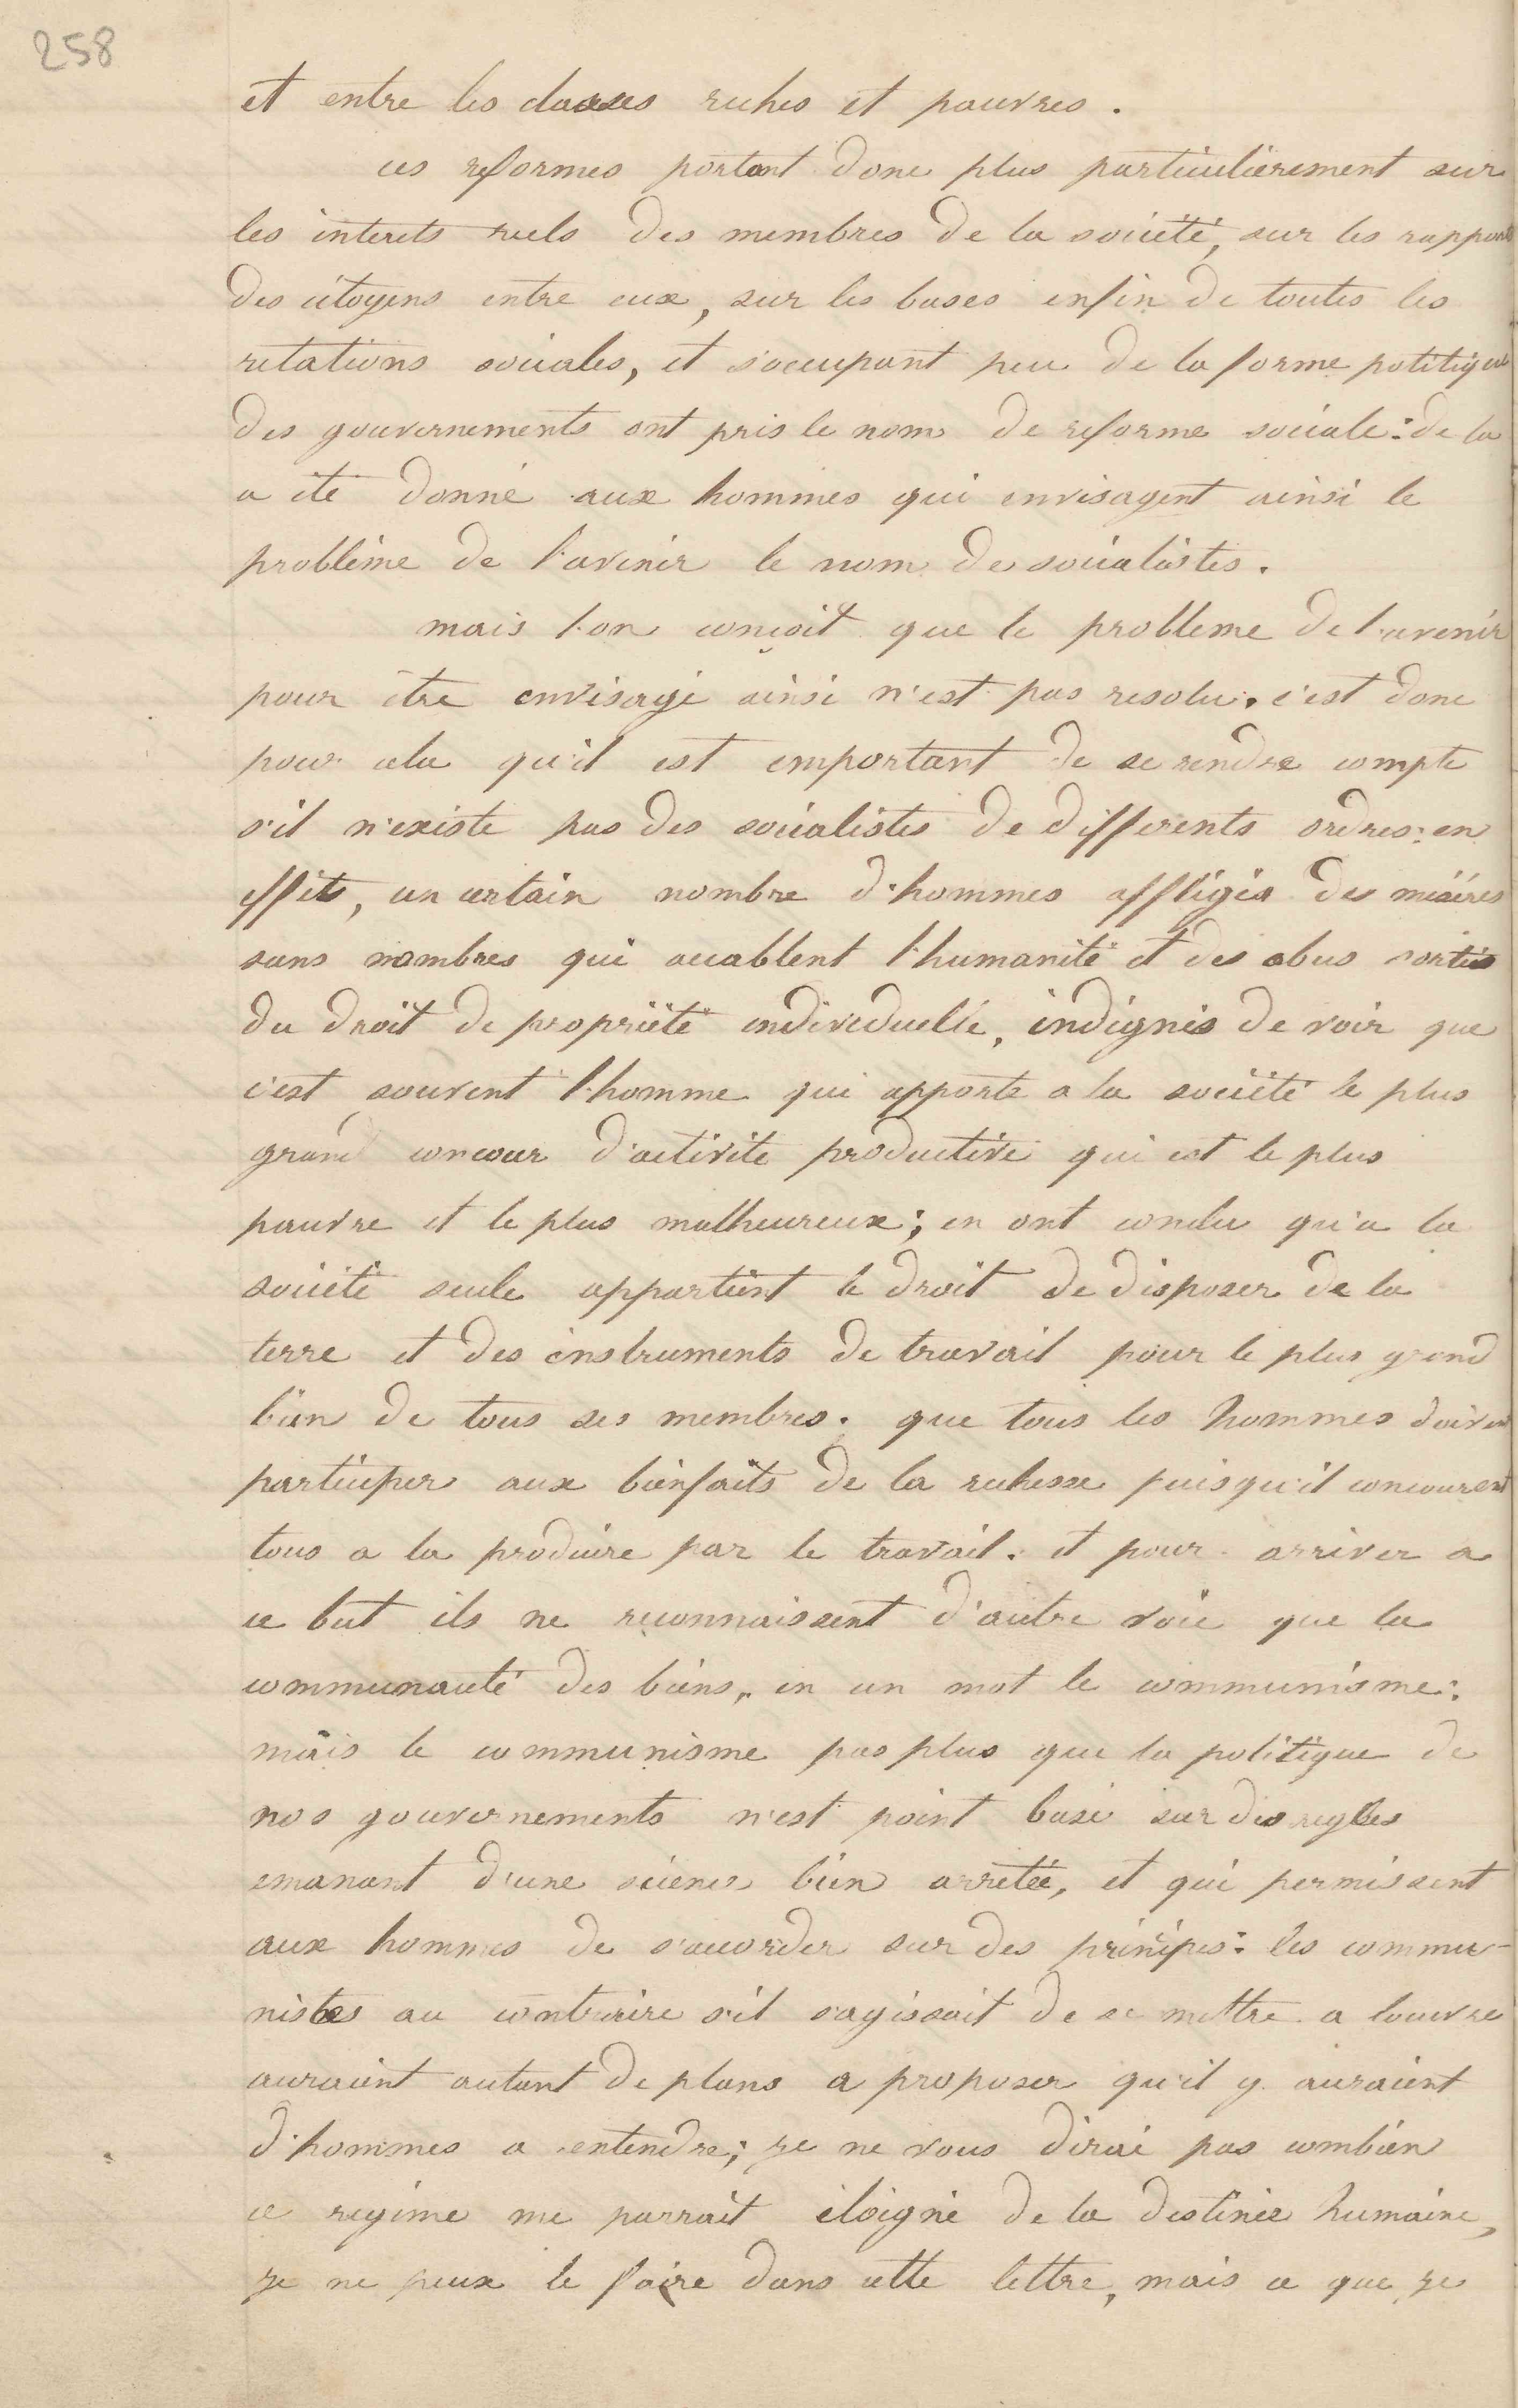 258
et entre les classes riches et pauvres.
ces reformes portant donc plus particulièrement sur
les interets reels des membres de la société, sur les rapports
des citoyens entre eux, sur les bases enfin de toutes les
relations sociales, et s'occupant peu de la forme politique
des gouvernements ont pris le nom de reforme sociale: de la
a été donné aux hommes qui envisagent ainsi le
problème de l'avenir le nom de socialistes.
mais l'on conçoit que le probleme de l'avenir
pour être envisagé ainsi n'est pas resolu. c'est donc
pour cela qu'il est important de se rendre compte
s'il n'existe pas des socialistes de differents ordres: en
effets, un certain nombre d'hommes affligés des misères
sans nombres qui accablent l'humanité et des abus sortis
du droit de propriété individuelle, indignés de voir que
c'est souvent l'homme qui apporte a la société le plus
grand concour d'activite productive qui est le plus
pauvre et le plus malheureux; en ont conclu qu'a la
société seule appartient le droit de disposer de la
terre et des instruments de travail pour le plus grand
bien de tous ses membres. que tous les hommes doivent
participer aux bienfaits de la richesse puisqu'il concourent
tous a la produire par le travail. et pour arriver a
ce but ils ne reconnaissent d'autre voie que la
communauté des biens, en un mot le communisme:
mais le communisme pas plus que la politique de
nos gouvernements n'est point basé sur des regles
emanant d'une science bien arretée, et qui permissent
aux hommes de s'accorder sur des principes: les commu-
nistes au contraire s'il s'agissait de se mettre a louvre
auraient autant de plans a proposer qu'il y auraient
d'hommes a entendre; je ne vous dirai pas combien
ce regime me parrait éloigné de la destinée humaine,
je ne peux le faire dans cette lettre, mais ce que je